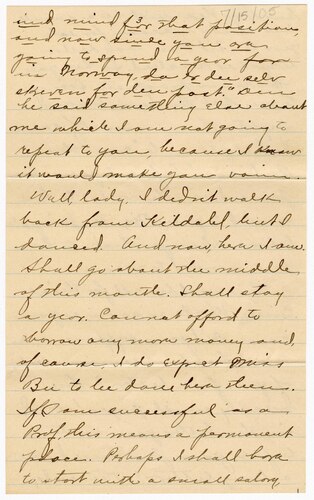 7/15/05
ind mind for that position,
and now since you are
going to spend a year
in Norway, da
for den post."
he said something else about
me which I am not going to
repeat to you, because I know
it would make you vain.
Well, lady, I didn't walk
back from Kildahl, but I
danced. And now, here I am.
Shall go about the middle
of this month. Shall stay
a year. Cannot afford to
borrow any more money and,
of course, I do expect Miss
Bu to be done here then.
If I am successful as a
Prof, this means a permanent
place. Perhaps I shall have
to start with a small salary